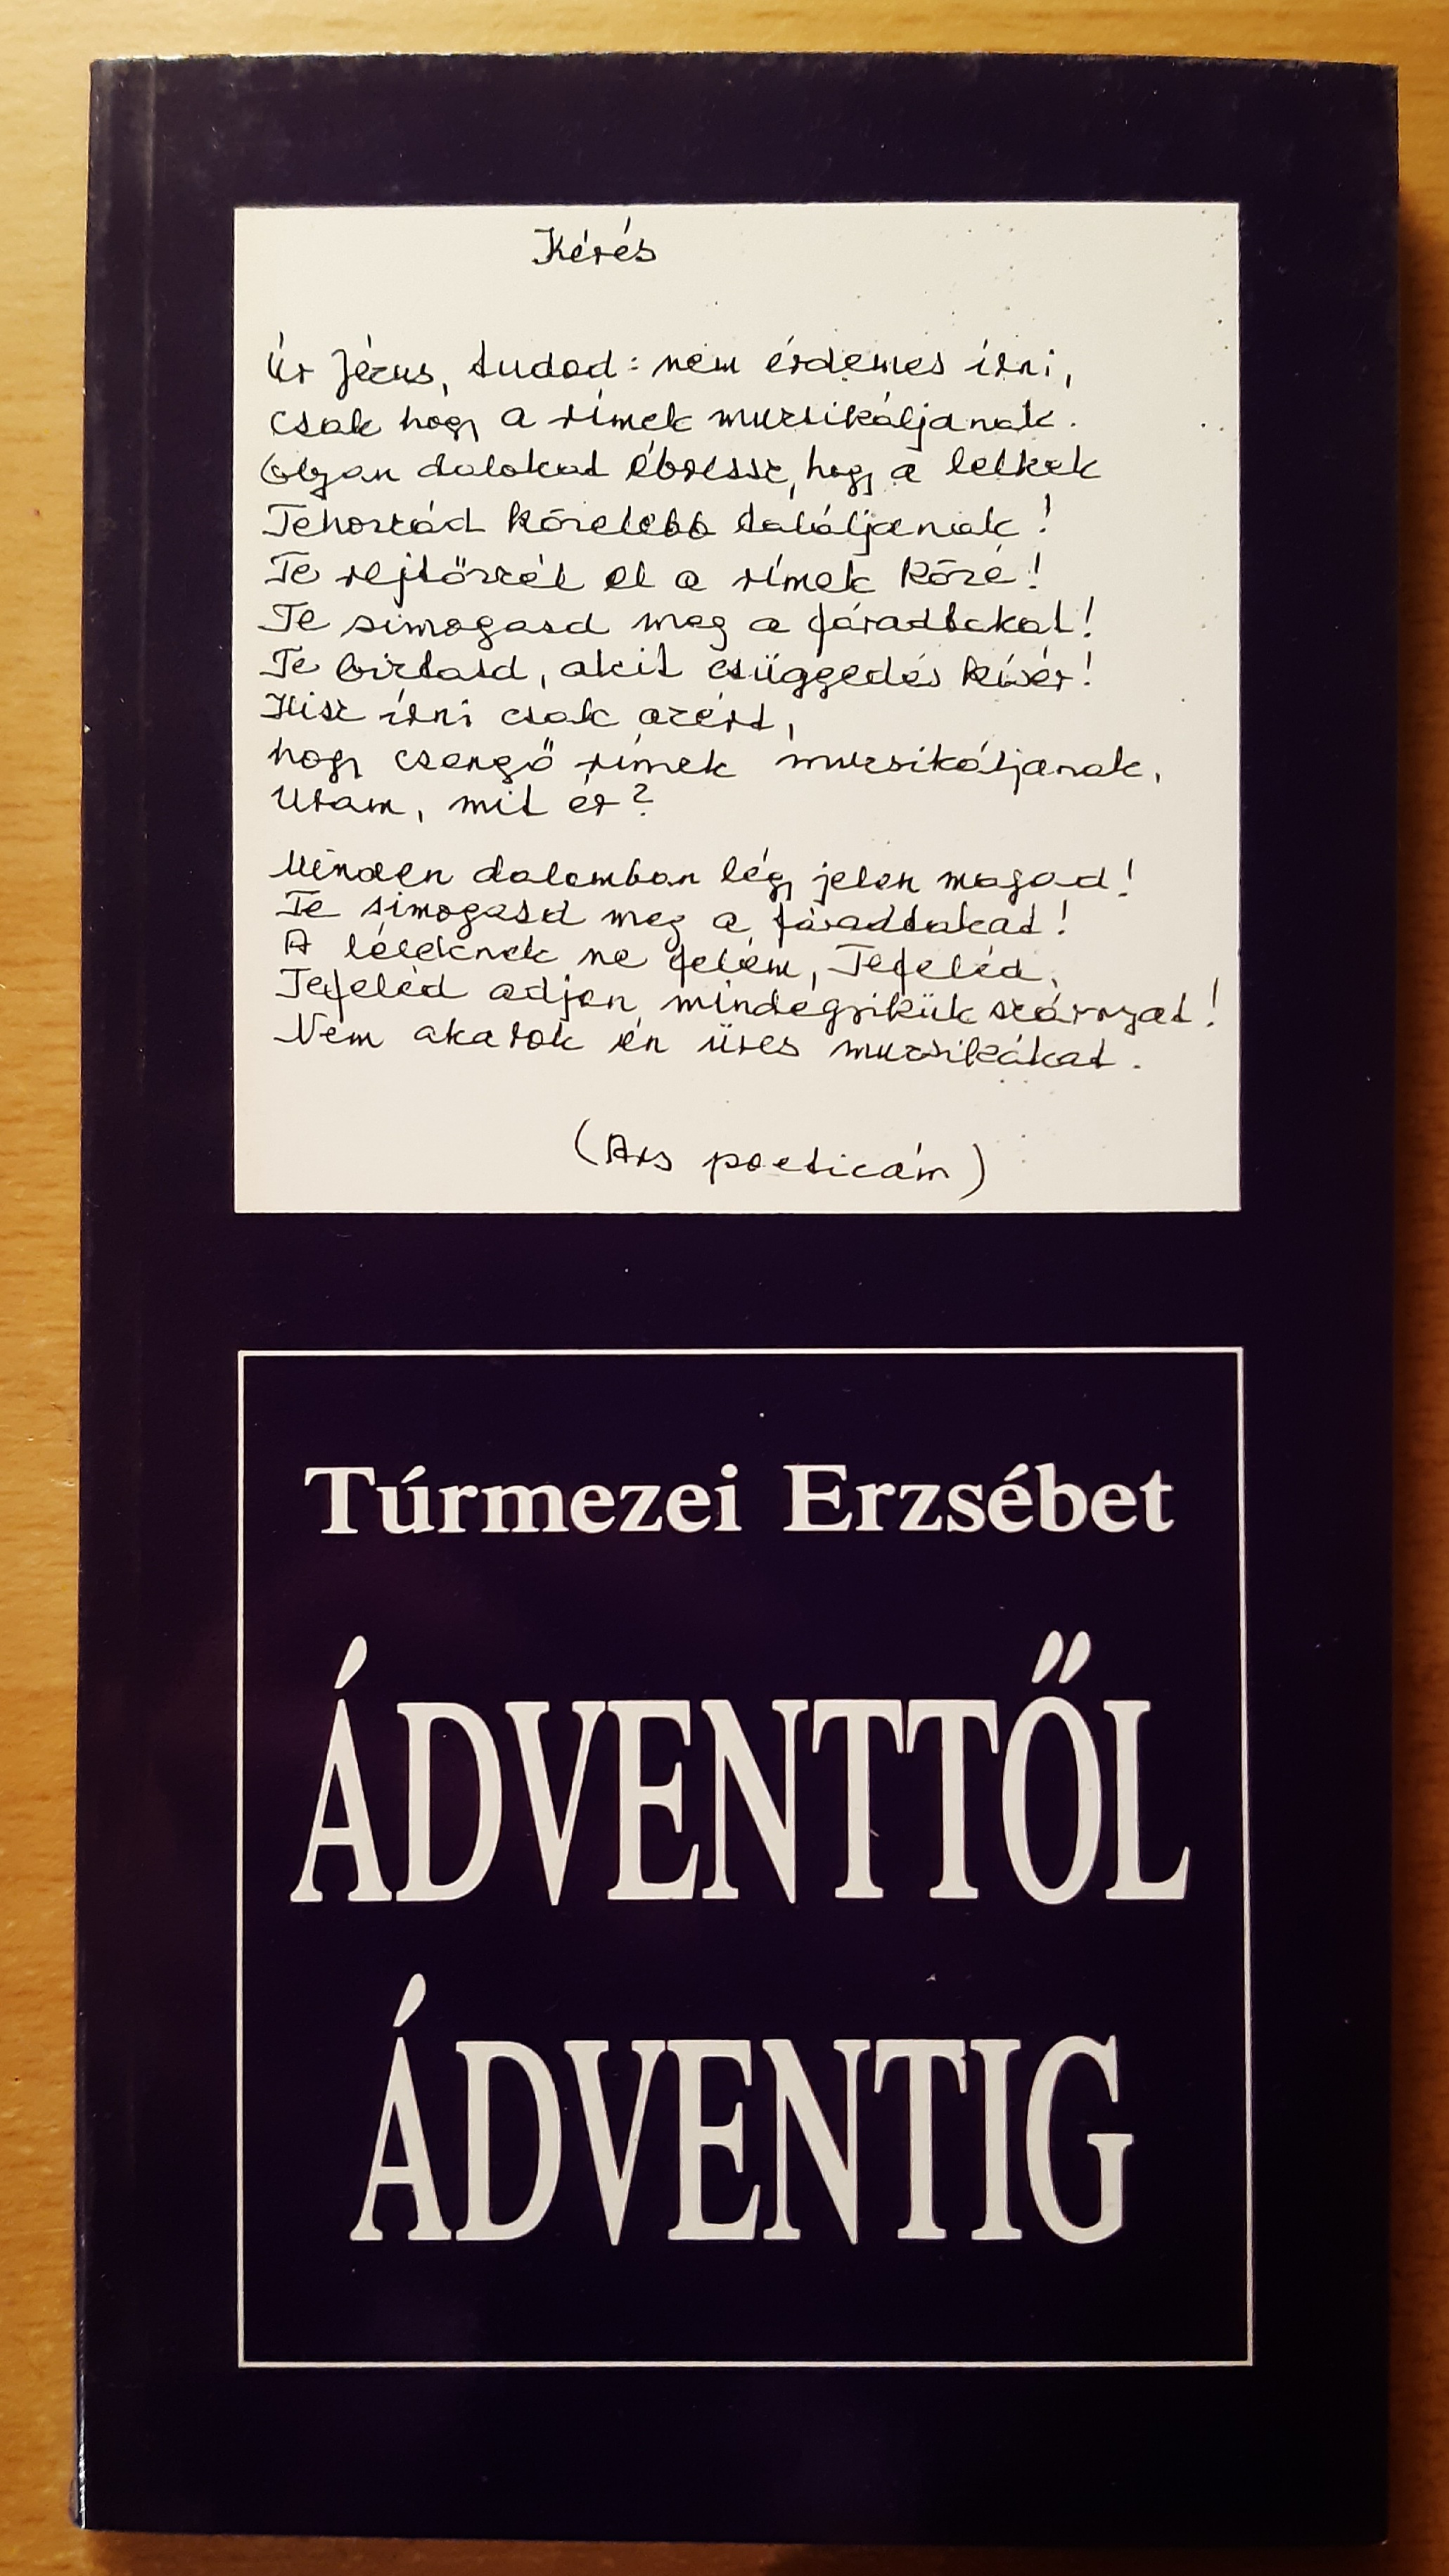 Kérés
Úr Jézus, tudod: nem érdemes írni,
csak hogy a rímek muzsikáljanak.
Olyan dalokat ébressz, hogy a lelkek
Tehozzád közelebb találjanak!
Te rejtőzzél el a rímek közé!
Te simogasd meg a fáradtakat!
Te bíztasd, akit csüggedés kísér!
Hisz írni csak azért,
hogy csengő rímek muzsikáljanak,
Uram, mit ér?
Minden dalomban légy jelen magad!
Te simogasd meg a fáradtakat!
A léleknek ne felém, Tefeléd,
Tefeléd adjon mindegyikük szárnyat!
Nem akarok én üres muzsikákat.
(Ars poeticám)
Túrmezei Erzsébet
ÁDVENTTŐL
ÁDVENTIG